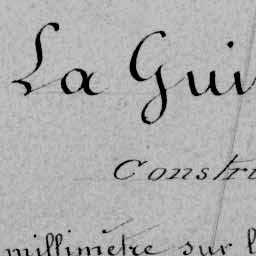 La Gui
Constru
millimètre sur l